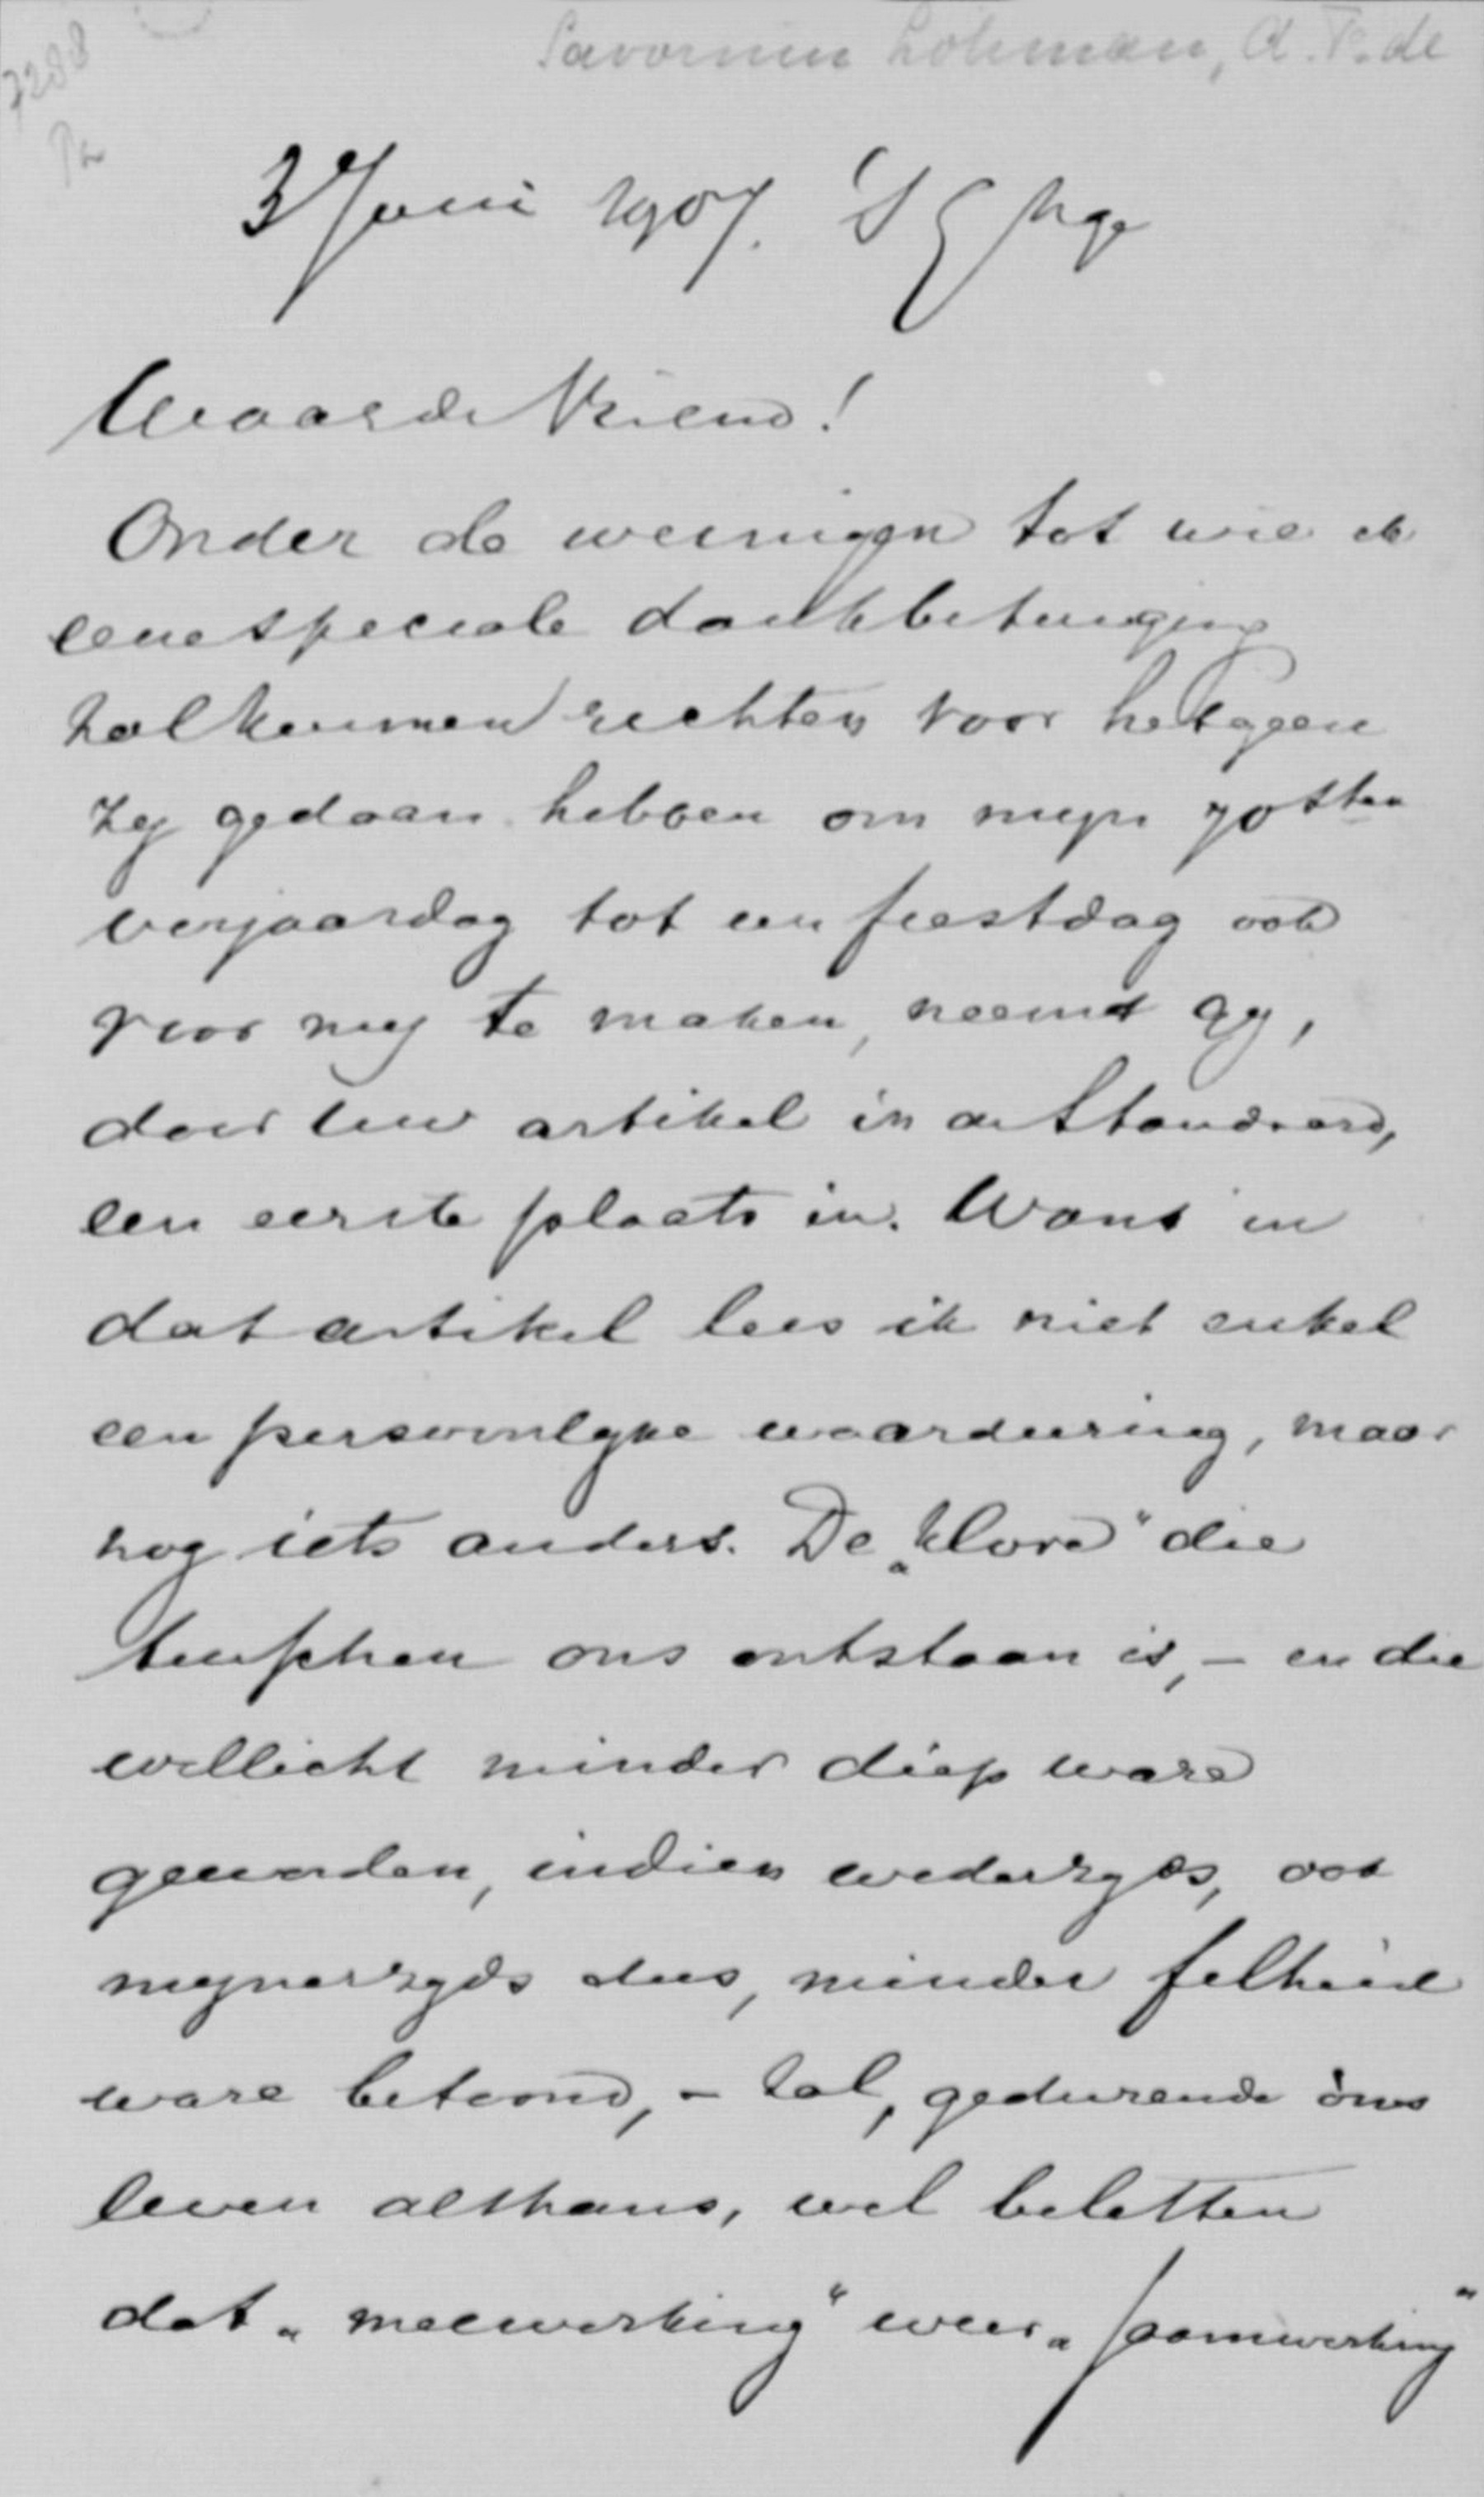 Savornin Lohman, A. F. de
7288
3 Juni 1907. 's Ghge
Waarde Vriend!
Onder de weinigen tot wie ik
eene speciale dankbetuiging
zal kunnen richten voor hetgeen
zij gedaan hebben om mijn 70sten
verjaardag tot een feestdag ook
voor mij te maken, neemt gij,
door uw artikel in de Standaard,
een eerste plaats in. Want in
dat artikel lees ik niet enkel
een persoonlijke waardeering, maar
nog iets anders. De „klove" die
tusschen ons ontstaan is, – en die
wellicht minder diep ware
geworden, indien wederzijds, ook
mijnerzijds dus, minder felheid
ware betoond, – zal, gedurende óns
leven althans, wel beletten
dat „meewerking" weer „saamwerking"